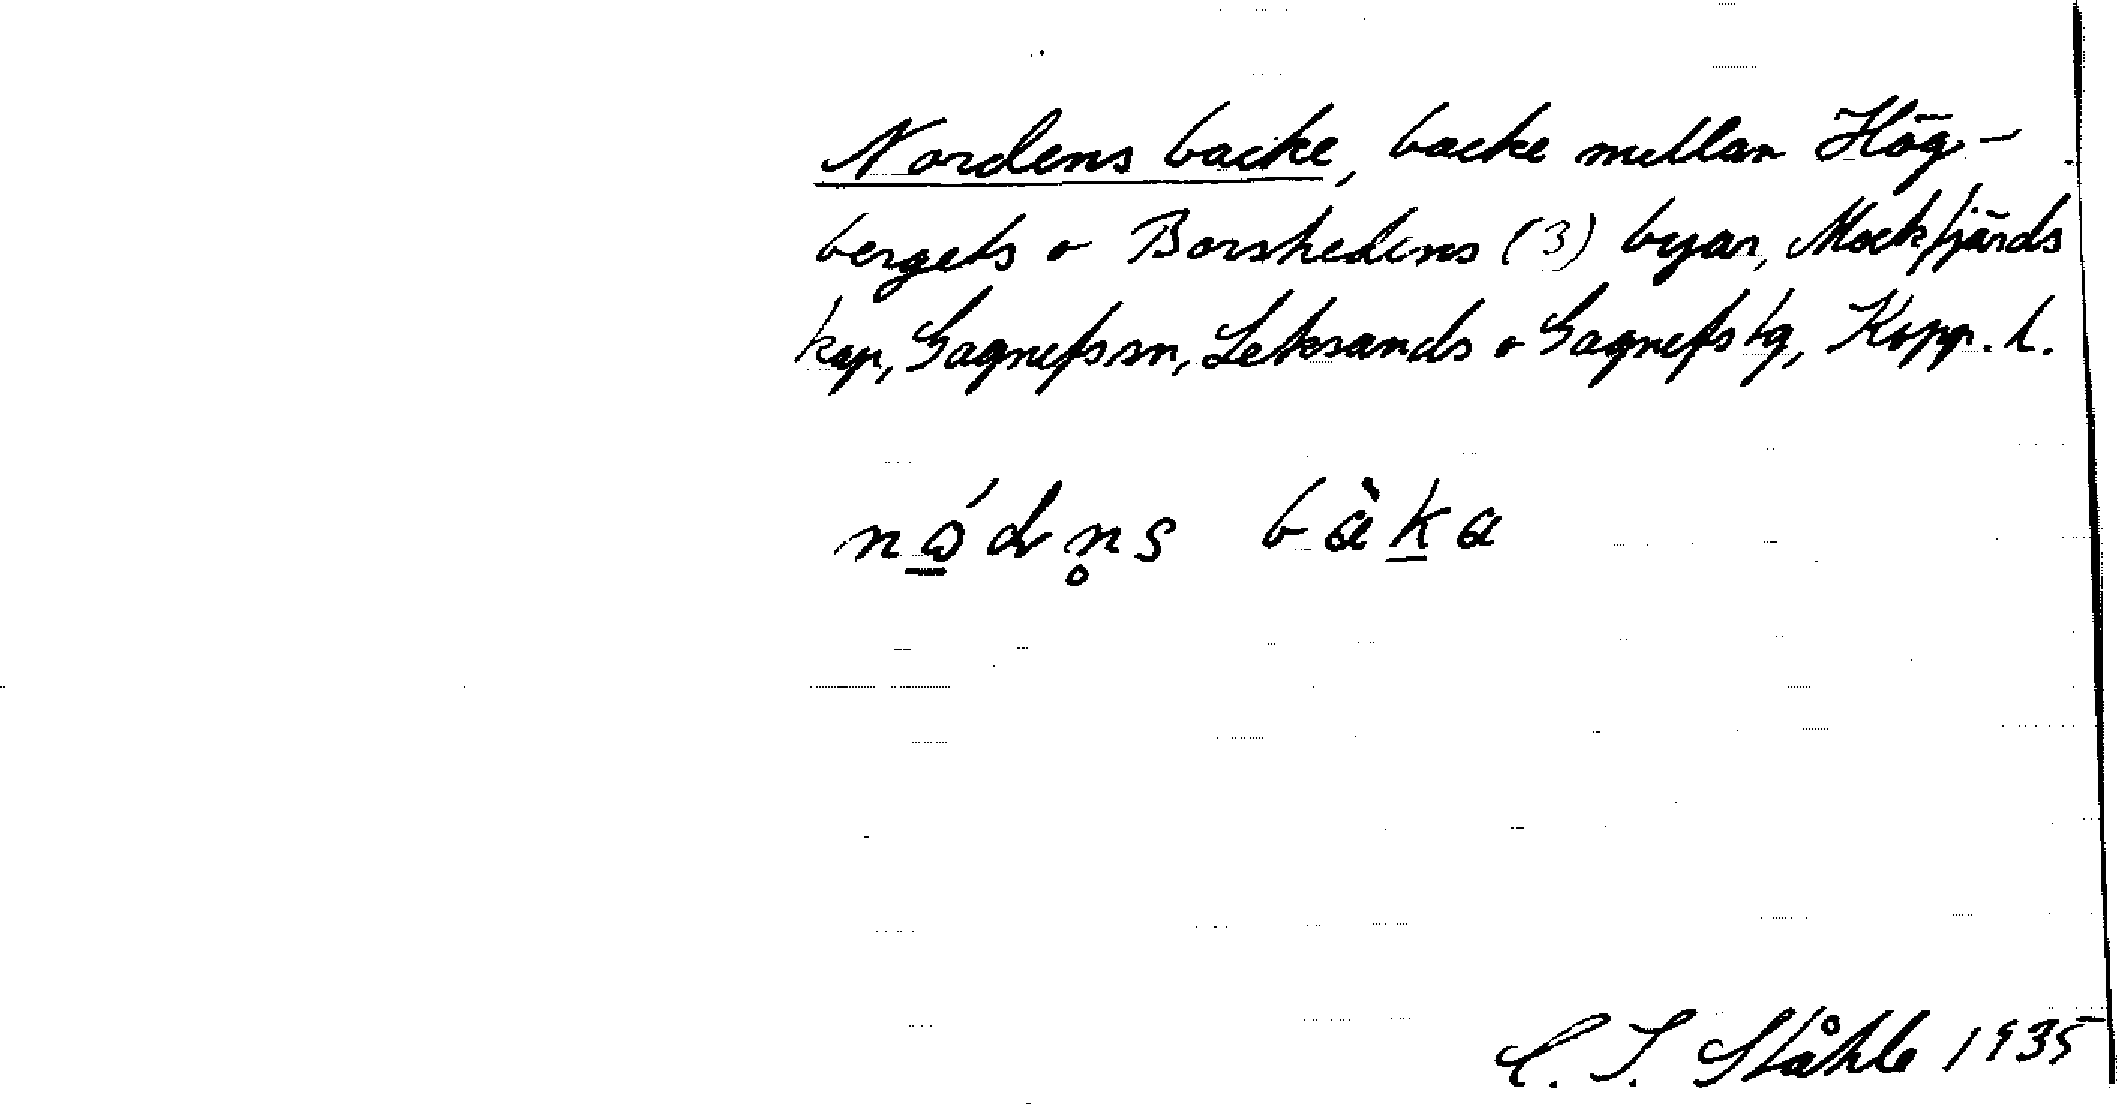 Nordens backe, backe mellan Hög-
bergets o Borshedens (3) byar, Mockfjärds
kap, Gagnefs sn, Leksands o Gagnefs tg, Kopp. l.
nǫ́dn̥s bàka
C. I. Ståhle 1935